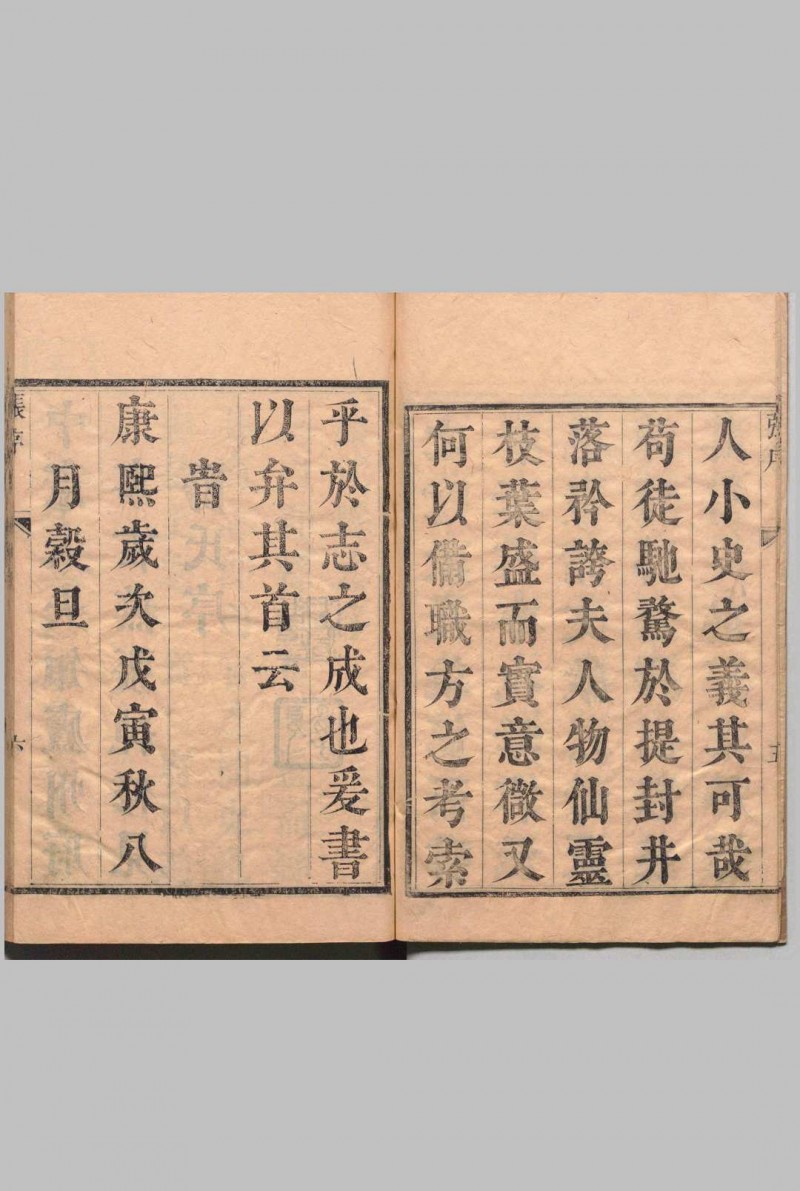 人小史之義其可哉
苟徒馳騖於提封井
落矜誇夫人物仙靈
枝葉盛而實意微又
何以備職方之考索
張序
五
乎於志之成也爰書
以弁其首云
旹
康熙歲次戊寅秋八
月穀旦
張序
六